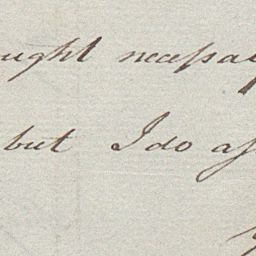 ought necessay
but I do as